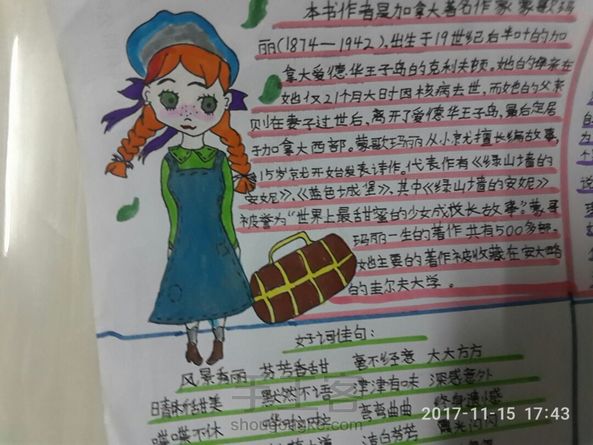 本书作者是加拿大著名作家蒙歌玛
丽(1874—1942),出生于19世纪后半叶的加
拿大爱德华王子岛的克利夫顿。她的母亲在
她仅21个月大时因核病去世,而她的父亲
则在妻子过世后,离开了爱德华王子岛,最后定居
于加拿大西部。蒙歌玛丽从小就擅长编故事,
15岁就开始发表诗作。代表作有《绿山墙的
安妮》、《蓝色城堡》。其中《绿山墙的安妮》
被誉为“世界上最甜蜜的少女成长故事”。蒙哥
玛丽一生的著作共有500多部。
她主要的著作被收藏在安大略
的圭尔夫大学。
好词佳句:
风景秀丽 芬芳香甜 毫不经意 大大方方
甜美 默然不语 津津有味 深感意外
喋喋不休 弯弯曲曲 终身遗憾
洁白芬芳
shougongke.com
2017-11-15 17:43